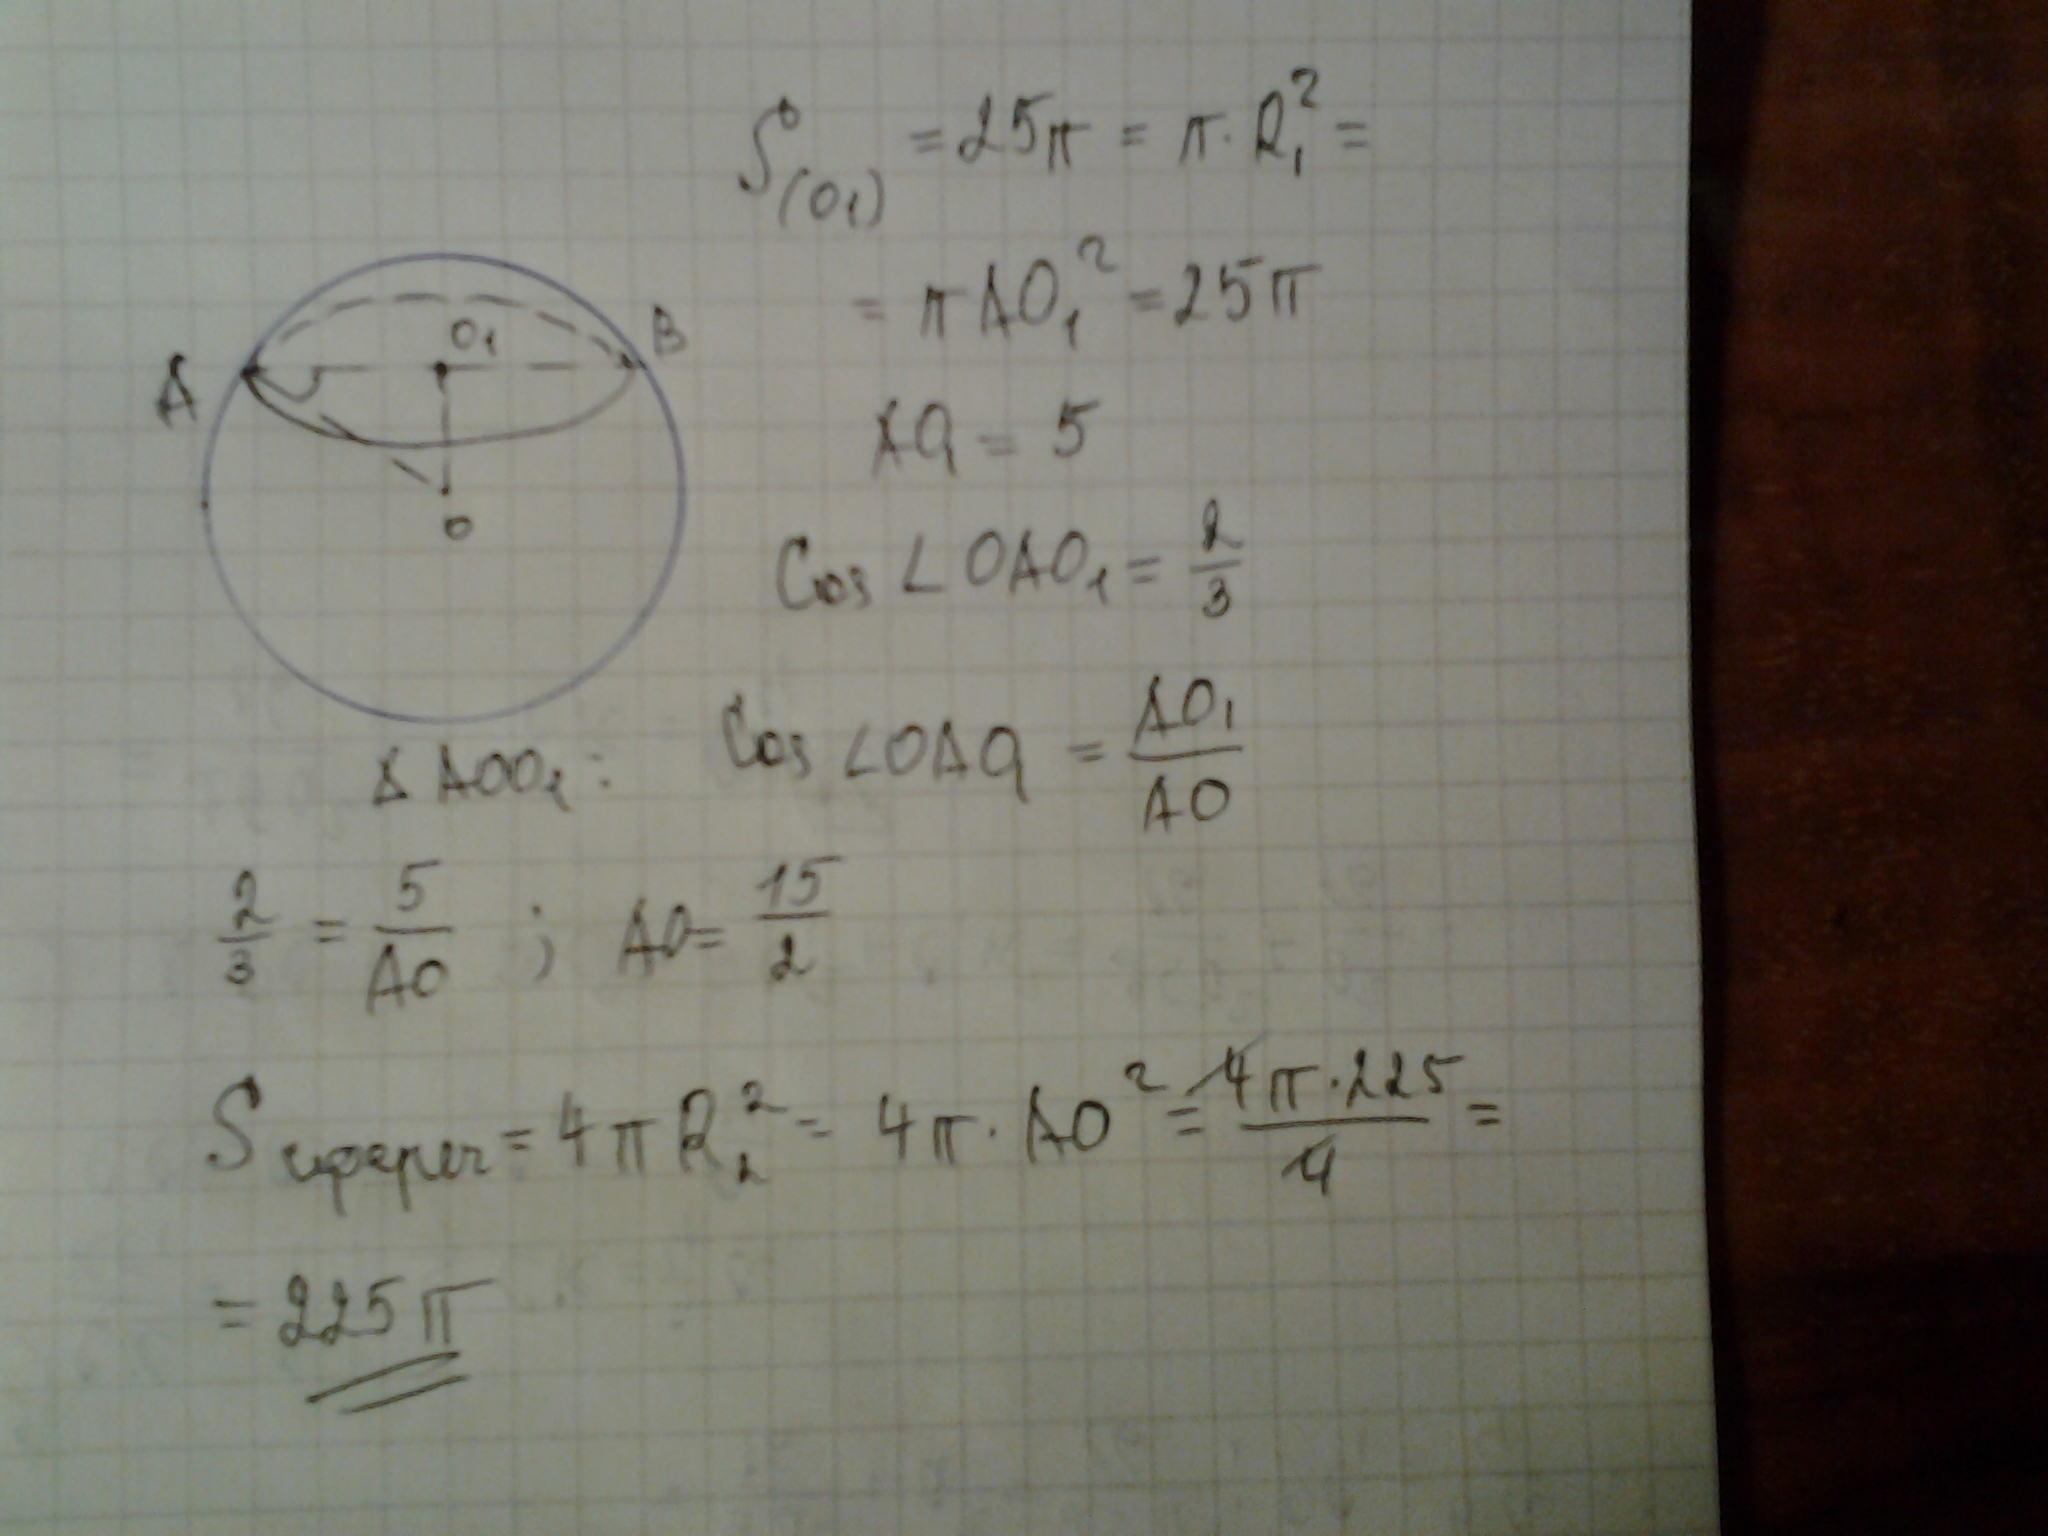 S(O₁) = 25π = π · R₁² =
= π AO₁² = 25π
A B O₁ O
AO₁ = 5
Cos ∠OAO₁ = 2/3
Δ AOO₁: Cos ∠OAO₁ = AO₁/AO
2/3 = 5/AO ; AO = 15/2
S сферич = 4πR₂² = 4π · AO² = 4π·225/4 =
= 225π